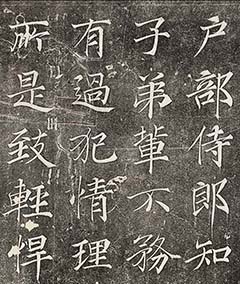 户部侍郎知
子弟輩不務
有過犯情理
所是致輕悍